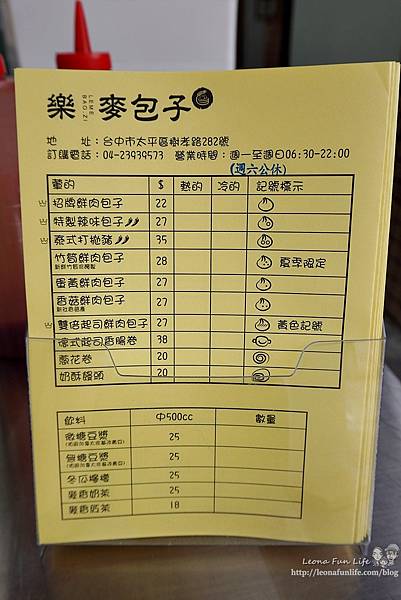 樂麥包子
LEME
BAOZI
地 址：台中市太平區樹孝路282號
訂購電話：04-23939573 營業時間：週一至週日06:30-22:00
(週六公休)
葷的 $ 熱的 冷的 記號標示
招牌鮮肉包子 22
特製辣味包子 27
泰式打拋豬 35
竹筍鮮肉包子 28 夏季限定
蛋黃鮮肉包子 27
香菇鮮肉包子 27
雙倍起司鮮肉包子 27 黃色記號
德式起司香腸卷 38
蔥花卷 20
奶酥饅頭 20
飲料 中500cc 數量
微糖豆漿 25
無糖豆漿 25
冬瓜檸檬 25
麥香奶茶 25
麥香紅茶 18
Leona Fun Life
http://leonafunlife.com/blog